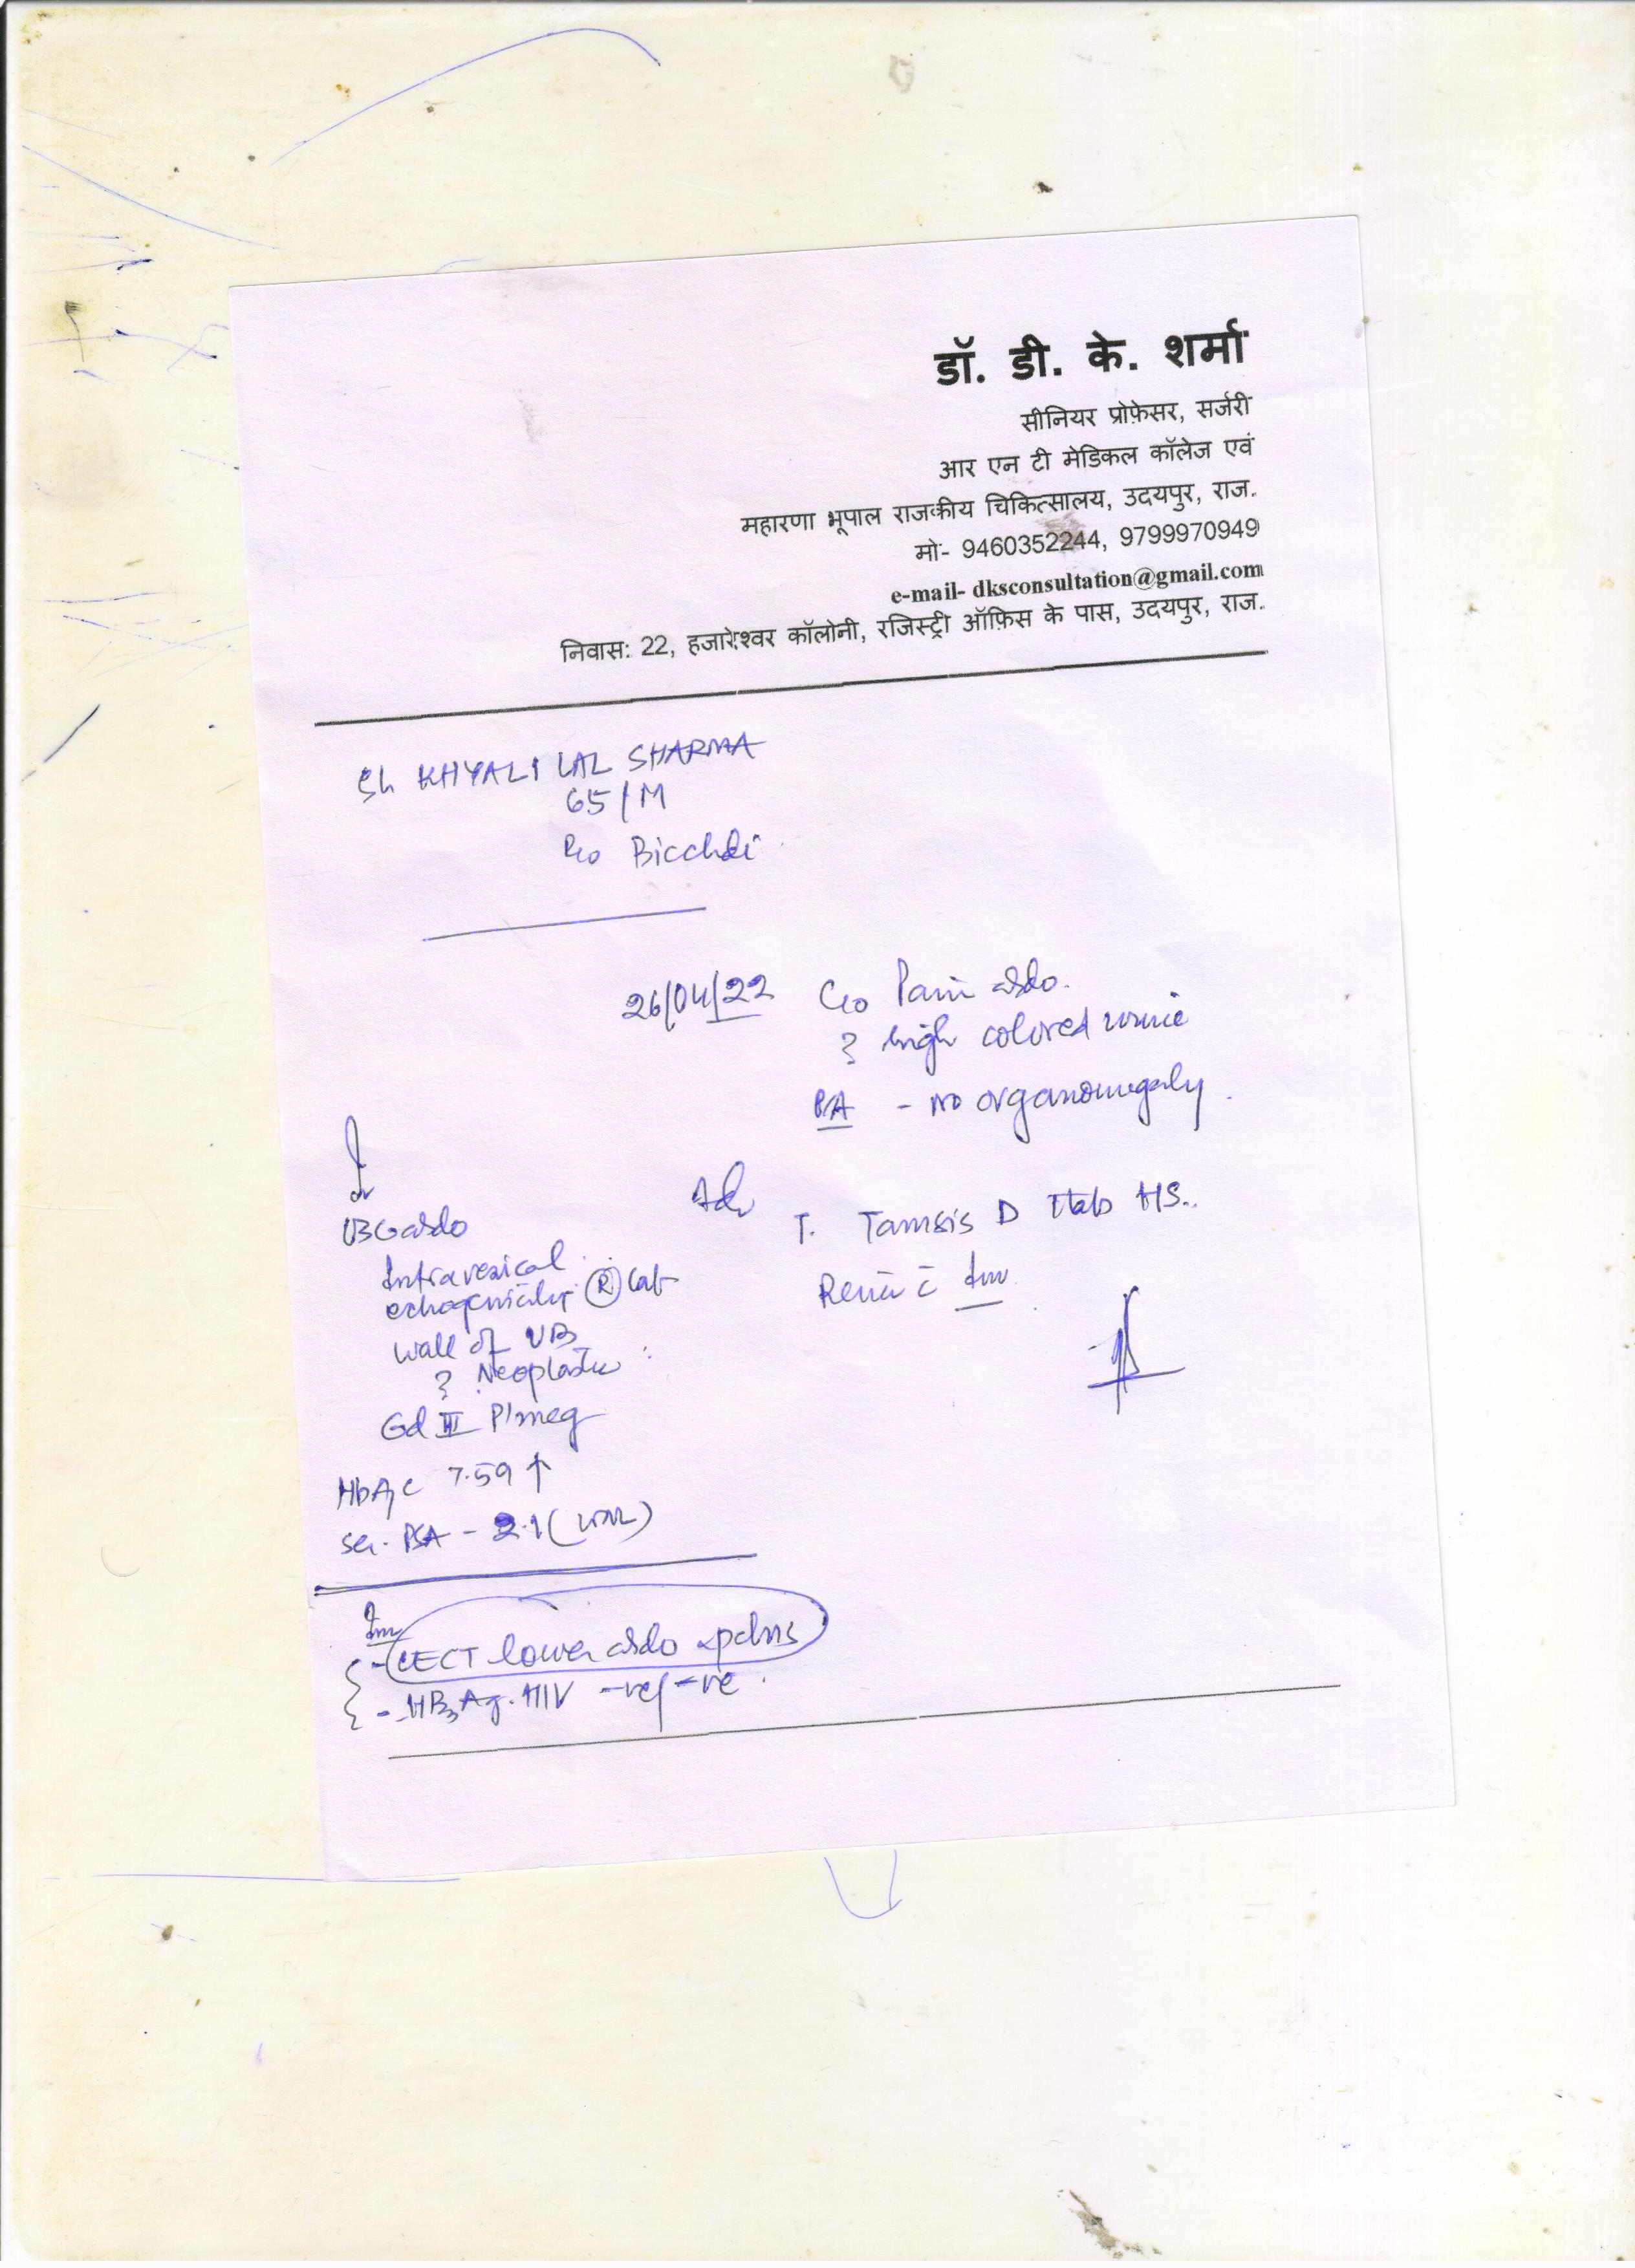 डॉ. डी. के. शर्मा
सीनियर प्रोफ़ेसर, सर्जरी
आर एन टी मेडिकल कॉलेज एवं
महारणा भूपाल राजकीय चिकित्सालय, उदयपुर, राज.
मो:- 9460352244, 9799970949
e-mail- dksconsultation@gmail.com
निवास: 22, हजारेश्वर कॉलोनी, रजिस्ट्री ऑफ़िस के पास, उदयपुर, राज.
Sh KHYALI LAL SHARMA
65/M
R/o
26/04/22 C/o Pain abdo.
? high colored urine
P/A - no organomegaly.
Adv
T. Tamsis D 1tab HS.
Review c Inv
Inv
USG abdo
Intravesical
echogenicity (R) lat
wall of UB
? Neoplastic
Gd III P'meg
HbA1c 7.59 ↑
Ser. PSA - 2.1 (WNL)
Inv
- CECT lower abdo & pelvis
- HBsAg. HIV -ve/-ve.